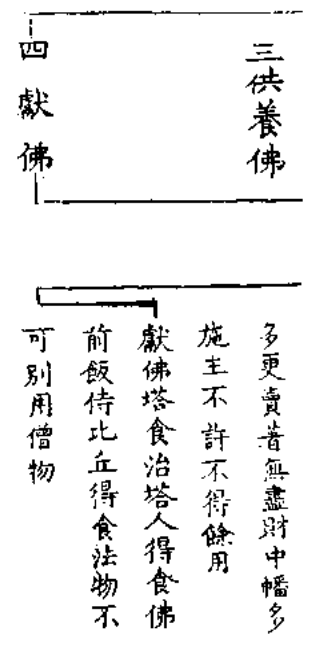 三供養佛
四獻佛
多更賣著無盡財中幡多
施主不許不得餘用
獻佛塔食治塔人得食佛
前飯侍比丘得食法物不
可別用僧物